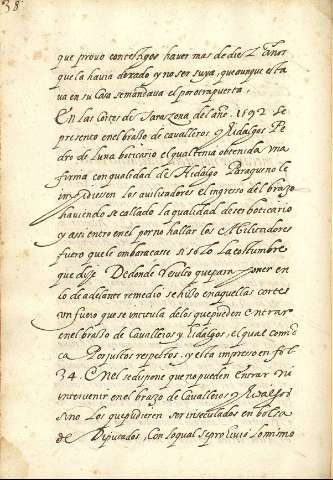 38
que provo contestigos haver mas de diez años
que la havia dexado y no ser suya, que aunque esta
va en su Casa semandava el por otra puerta.
En las Cortes de Tarazona del año. 1592 se
presento en el brasso de cavalleros y Hidalgos Pe
dro de Luna boticario el qual tenia obtenida una
firma con qualidad de Hidalgo Para que no le
impidiesen los avilitadores el ingreso del brazo
haviendose callado la qualidad de ser boticario
y assi entro en el por no hallar los Abilitadores
fuero que le embaraçasse si solo la costumbre
que dije De donde resulto que para poner en
lo de adelante remedio se hisso en aquellas cortes
un fuero que se intitula de los que pueden entrar
en el brasso de Cavalleros y Hidalgos, el qual comi
ça Por justos respetos, y esta impreso en fol
34. En el se dispone que no pueden entrar ni
intervenir en el brazo de Cavalleros y Hidalgos
sino Los que pudieren ser inseculados en bolsa
de Diputados, Con lo qual se prohivio lo mismo